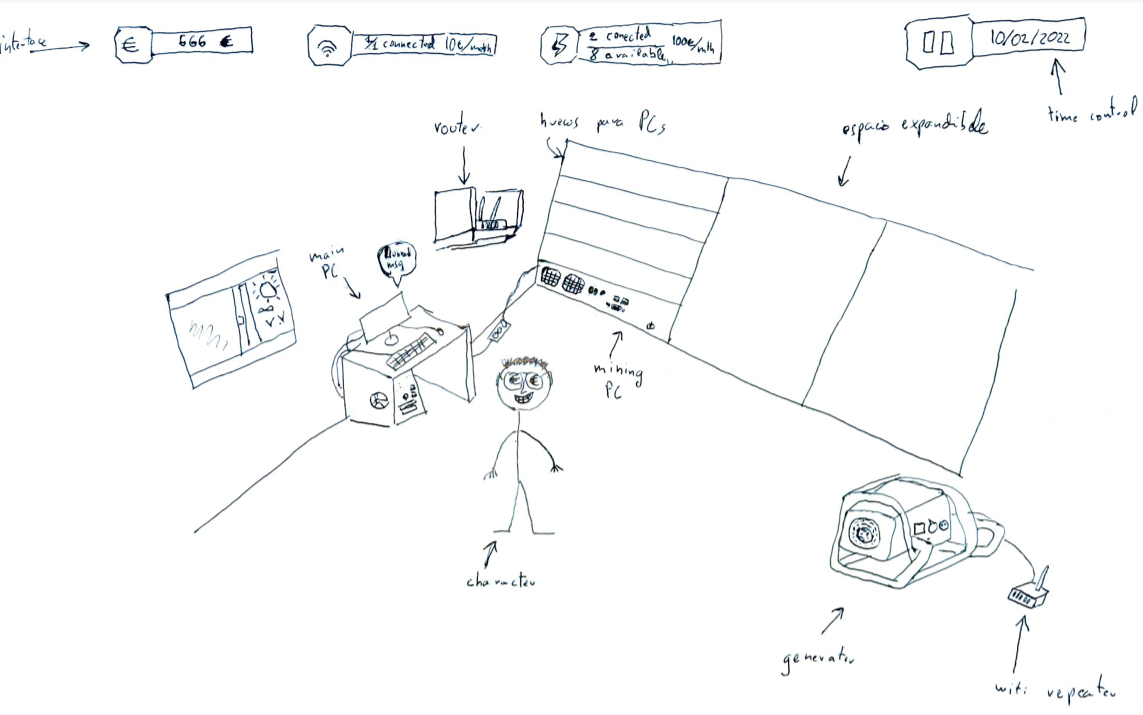 interface
€ 666 €
1/1 connected 10€/mth
2 conected 100€/mth
8 available
10/02/2022
time control
router
huecos para PCs
espacio expandible
main
PC
msg
mining
PC
character
generator
wifi repeater